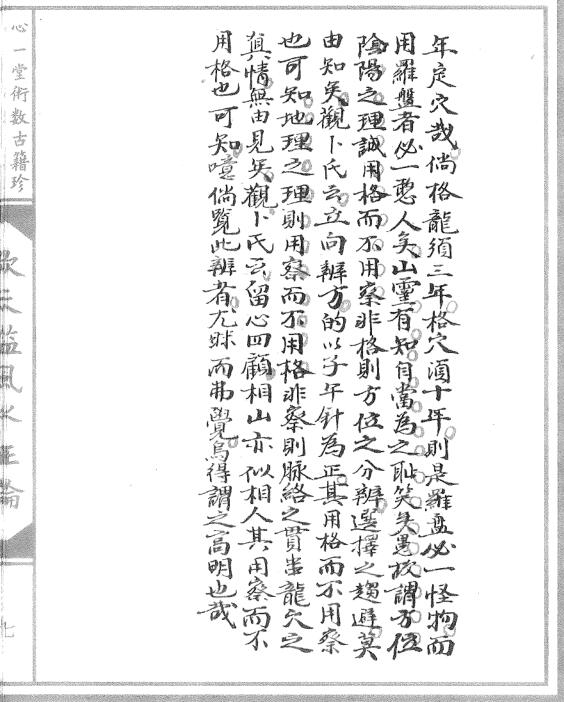 年定穴哉倘格龍須三年格穴須十年則是羅盤必一怪物而
用羅盤者必一憨人矣山靈有知自當為之恥笑矣愚故謂方位
陰陽之理誠用格而不用察非格則方位之分辨選擇之趨避莫
由知矣觀卜氏云立向辨方的以子午針為正其用格而不用察
也可知地理之理則用察而不用格非察則脉絡之貫串龍穴之
真情無由見矣觀卜氏云留心四顧相山亦似相人其用察而不
用格也可知噫倘覽此辨者尤昧而弗覺烏得謂之高明也哉
心一堂術數古籍珍
風水正論
七